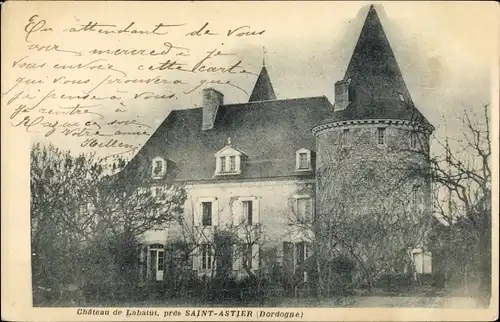 En attendant de vous
voir mercredi je
vous envoie cette carte
qui vous prouvera que
je pense à vous
Votre amie
Château de Labatut, près SAINT-ASTIER (Dordogne)